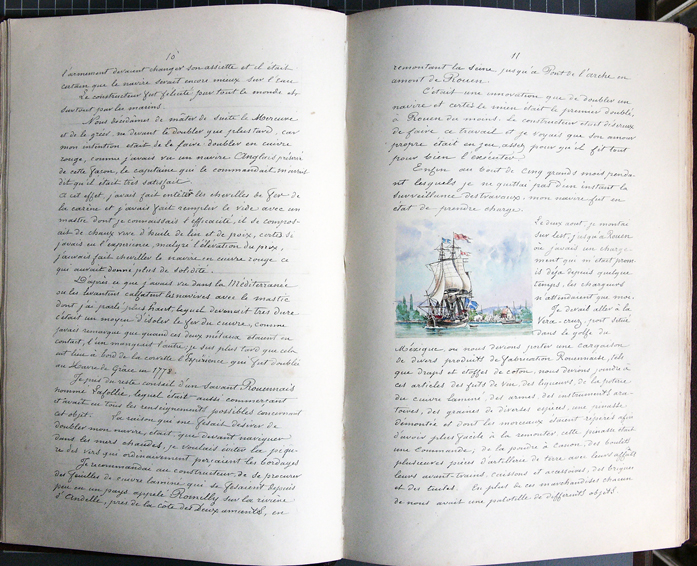 10
l'armement devaient changer son assiette et il était
certain que le navire serait encore mieux sur l'eau.
Le constructeur fut félicité par tout le monde et
surtout par les marins.
Nous décidames de mater de suite le Mercure
et de le gréer, ne devant le doubler que plus tard, car
mon intention était de la faire doubler en cuivre
rouge, comme j'avais vu un navire Anglais
de cette façon, le capitaine qui le commandait m'avait
dit qu'il était très satisfait.
A cet effet, j'avais fait les chevilles de fer de
la carène et j'avais fait remplir le vide avec un
mastic dont je connaissais l'efficacité, il se compos-
ait de chaux vive d'huile de lin et de poix, certes si
j'avais eu l'expérience, malgré l'élévation du prix,
j'aurais fait cheviller le navire en cuivre rouge ce
qui aurait donné plus de solidité.
D'après ce que j'avais vu dans la Méditerranée
où les levantins calfatent les navires avec le mastic
dont j'ai parlé plus haut, lequel devenait très dure
c'était un moyen d'isoler le fer du cuivre, comme
j'avais remarqué que quand ces deux métaux étaient en
contact, l'un mangeait l'autre, je sus plus tard que cela
eut lieu à bord de la corvette l'Expérience qui fut doublée
au Havre de Grâce en 1778.
Je pris du reste conseil d'un savant Rouennais
nommé Lafollie, lequel était aussi commerçant
et avait eu tous les renseignements possibles concernant
cet objet. La raison qui me faisait désirer de
doubler mon navire, était que devant naviguer
dans les mers chaudes, je voulais éviter la piqu-
re des vers qui ordinairement perçaient les bordages
Je recommandai au constructeur de se procurer
des feuilles de cuivre laminé qui se faisaient depuis
peu en un pays appelé Romilly sur la rivière
d'Andelle, près de la côte des Deux amants, en
11
remontant la Seine jusqu'à Pont de l'arche en
amont de Rouen.
C'était une innovation que de doubler un
navire et certes le mien était le premier doublé,
à Rouen du moins. Le constructeur était désireux
de faire ce travail et je voyais que son amour
propre était en jeu, assez pour qu'il fit tout
pour bien l'exécuter.
Enfin au bout de cinq grands mois penda-
nt lesquels je ne quittai pas d'un instant la
surveillance des travaux, mon navire fut en
état de prendre charge.
Le deux août je montai
sur lest, jusqu'à Rouen
où j'avais un charge-
ment qui m'était prom-
is déjà depuis quelque
temps, les chargeurs
n'attendaient que moi.
Je devais aller à la
Vera-cruz, port situé
dans le golfe du
Mexique, où nous devions porter une cargaison
de divers produits de fabrication Rouennaise, tels
que draps et étoffes de coton, nous devions joindre à
ces articles des futs de vin, des liqueurs, de la poterie
du cuivre laminé, des armes, des instruments ara-
toires, des graines de diverses espèces, une
démontée et dont les morceaux étaient repérés afin
d'avoir plus facile à la remonter, cette était
une commande, de la poudre à canon, des boulets
plusieurs pièces d'artillerie de terre avec leurs affûts
leurs avant-trains, caissons et accessoires, des briques
et des tuiles. En plus de ces marchandises chacun
de nous avait une pacotille de différents objets.